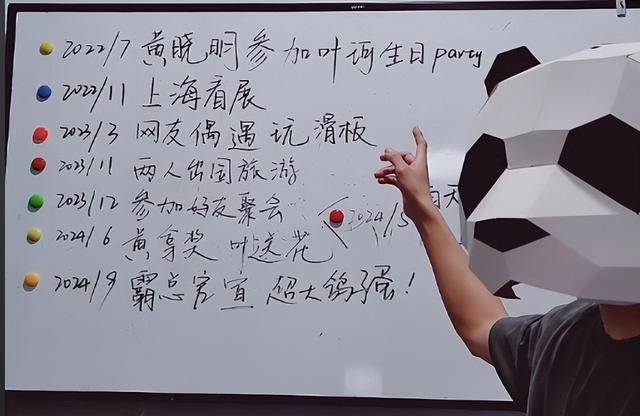 2022/7 黄晓明参加叶珂生日party
2022/11 上海看展
2023/3 网友偶遇玩滑板
2023/11 两人出国旅游
2023/12 参加好友聚会
2024/5 天
2024/6 黄拿奖 叶送花
2024/9 霸总官宣 超大鸽子蛋！